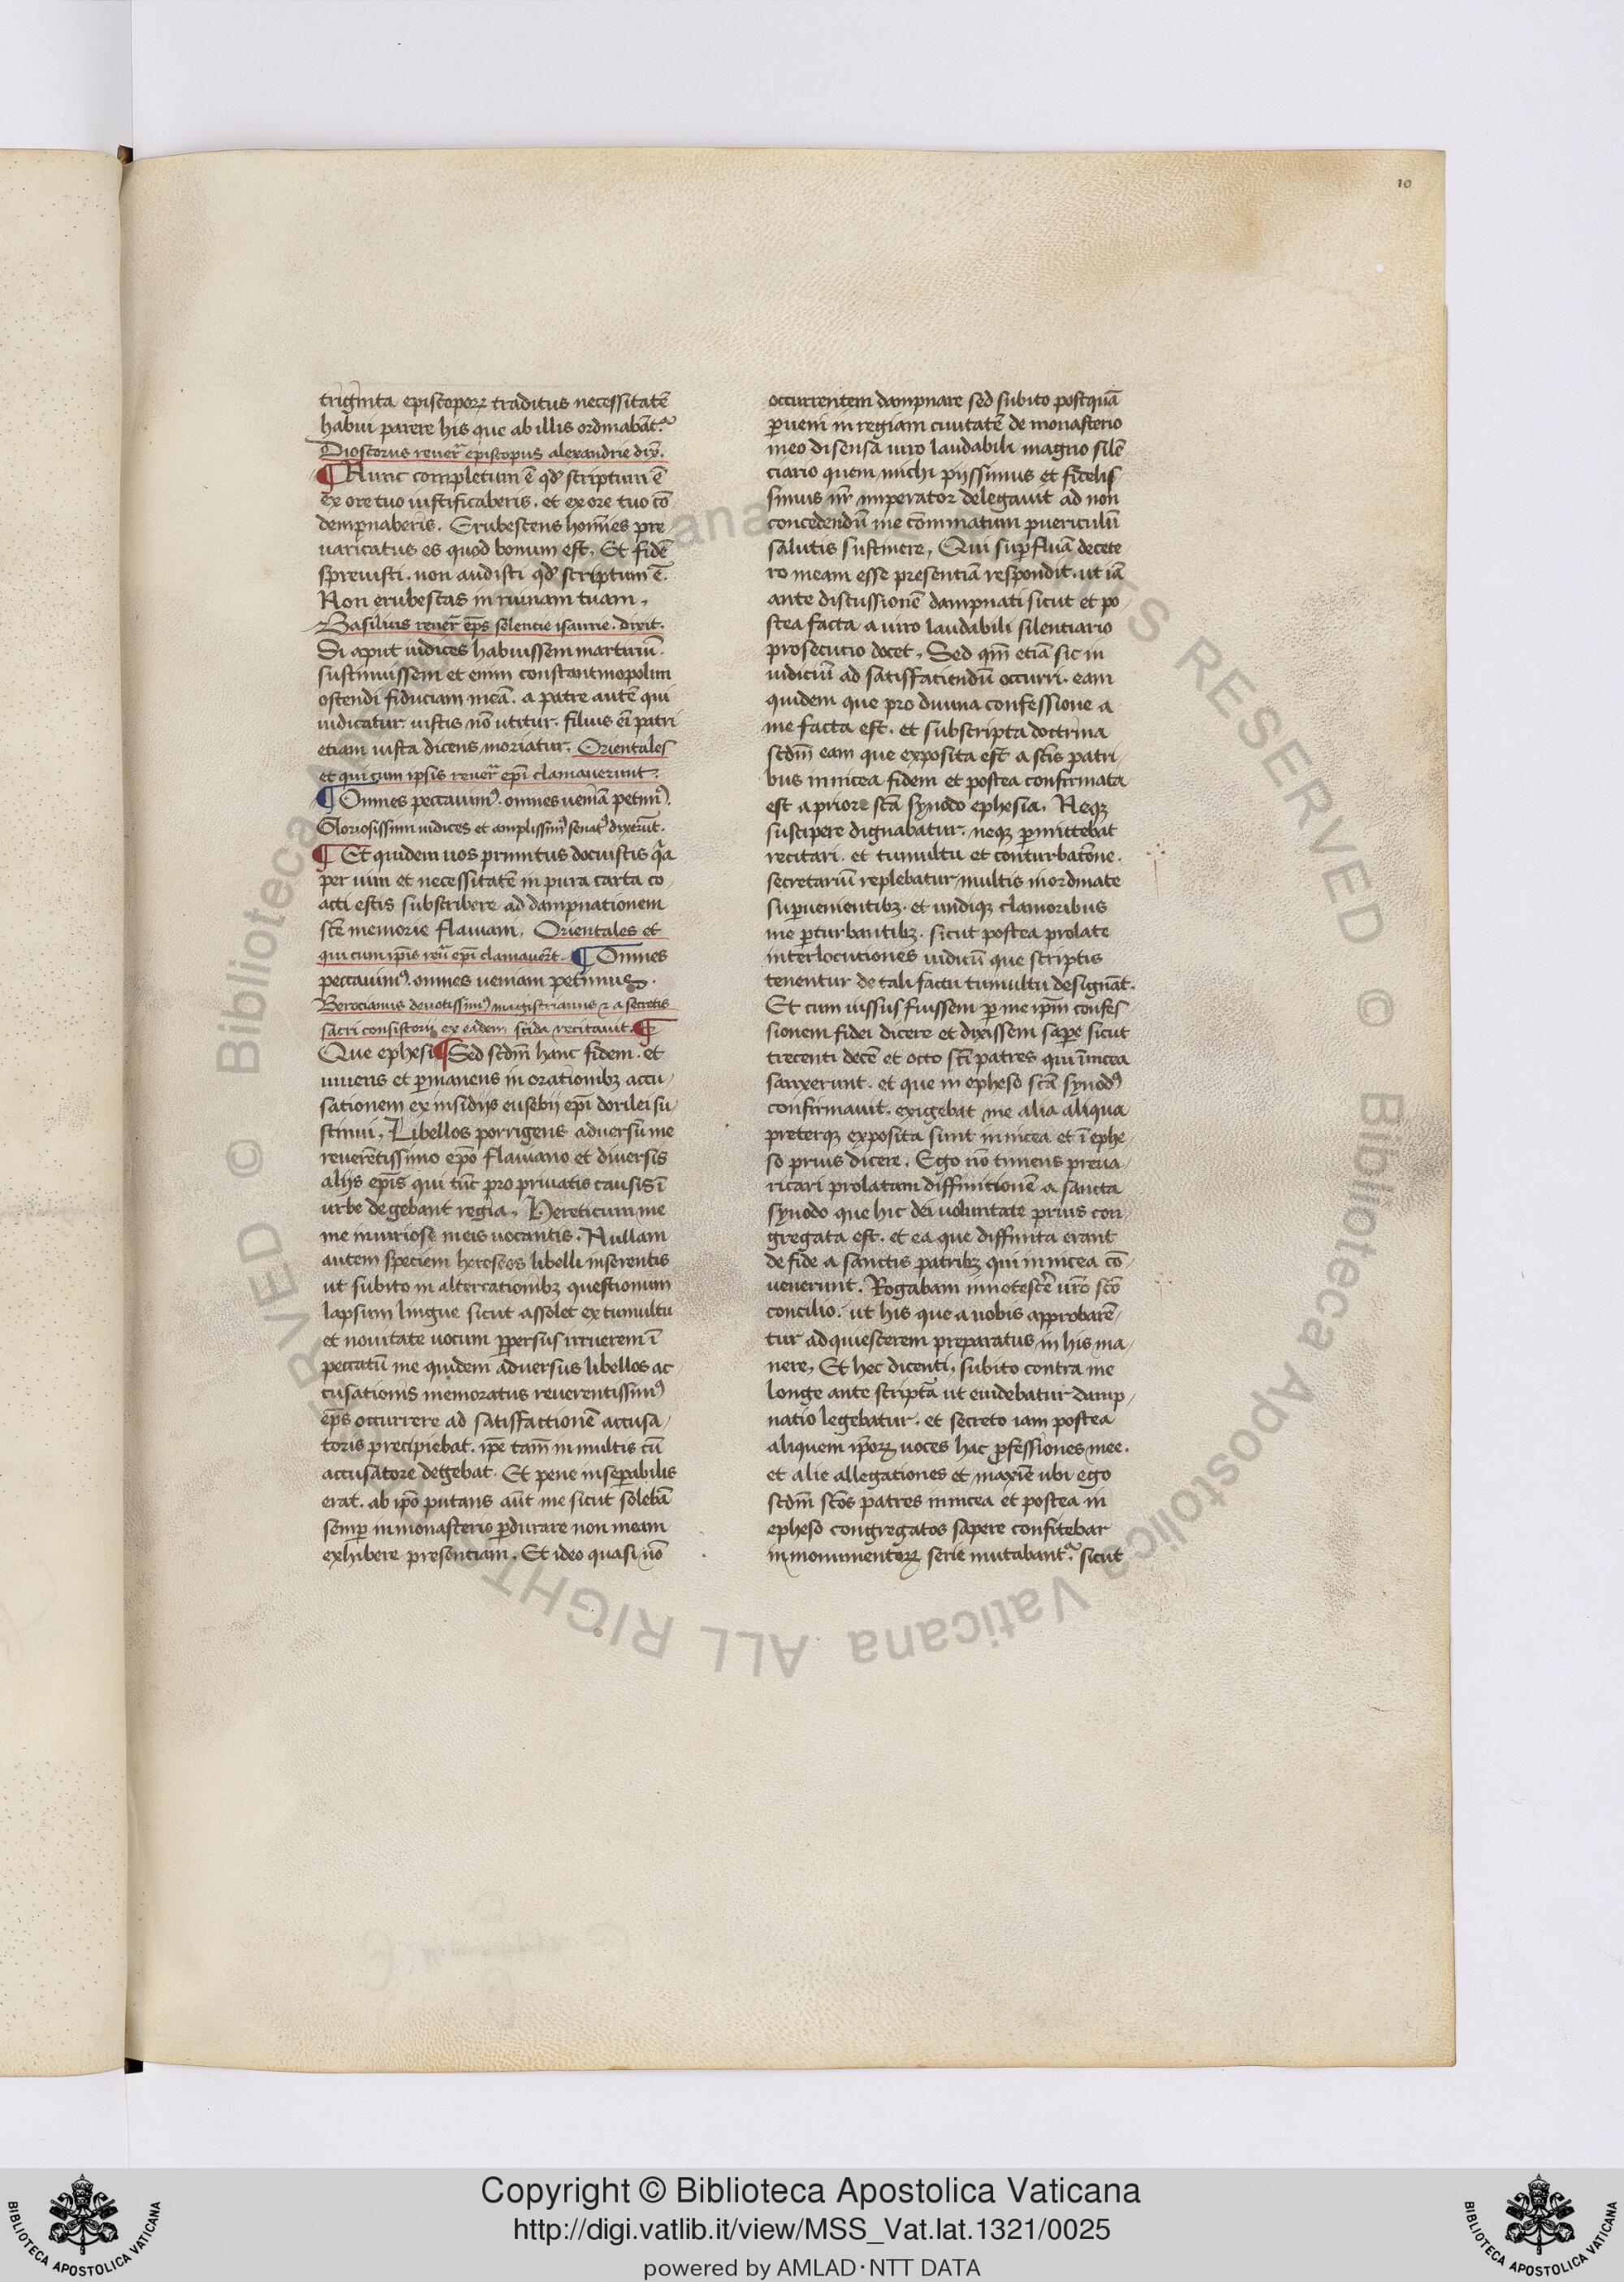 10
triginta episcoporꝝ traditus necessitatē
habui parere his que ab illis ordinabant᷑
Dioscorus reuer̄ episcopus alexandrie dix̄.
¶ Nunc completum ē qđ scriptum ē
Ex ore tuo iustificaberis. et ex ore tuo cō
dempnaberis. Erubescens homīes pre
uaricatus es quod bonum est. Et fidē
spreuisti. non audisti qđ scriptum ē.
Non erubescas in ruinam tuam.
Basilius reuer̄ ep̄s seleucie isaurie. dixit.
Si aput iudices habuissem marturiū.
sustinuissem et enim constantinopolim
ostendi fiduciam meā. a patre autē qui
iudicatur iustis nō utitur. filius ei patri
etiam iusta dicens moriatur. Orientales
et qui cum ipsis reuer̄ ep̄i clamauerunt.
¶ Omnes peccauimꝰ. omnes ueniā petimꝰ.
Gloriosissimi iudices et amplissimꝰ senatꝰ dixerūt.
¶ Et quidem uos primitus docuistis qͣa
per uim et necessitatē in pura carta co
acti estis subscribere ad dampnationem
scē memorie flauiani. Orientales et
qui cum ip̄is reu̅ ep̄i clamauer̄t. ¶ Omnes
peccauimꝰ. omnes ueniam petimus.
Berocianus deuotissimꝰ magistrianus ⁊ a secretis
sacri consistorij ex eadem scida recitauit. ¶
Que ephesi ¶ Sed scdm̄ hanc fidem. et
uiuens et ꝑmanens in orationibꝫ accu
sationem ex insidijs eusebij ep̄i dorilei su
stinui. Libellos porrigens aduersū me
reuerētissimo ep̄o flauiano et diuersis
alijs ep̄is qui tūc pro priuatis causis ī
urbe degebant regia. Hereticum me
me iniuriose meis uocantis. Nullam
autem speciem hereseos libelli inserentis
ut subito in altercationibꝫ questionum
lapsum lingue sicut assolet ex tumultu
et nouitate uocum ꝓpersus irruerem ī
peccatū me quidem aduersus libellos ac
cusationis memoratus reuerentissimꝰ
ep̄s occurrere ad satisfactionē accusa
toris precipiebat. ip̄e tam̄ in multis cū
accusatore degebat. Et pene inseꝑabilis
erat. ab ip̄o putans aūt me sicut solebā
semꝑ in monasteris ꝑdurare non meam
exhibere presentiam. Et ideo quasi nō
occurrentem dampnare sed subito postquā
ꝑueni in regiam ciuitatē de monasterio
meo disensā uiro laudabili magno silē
ciario quem michi pijssimus et fidelis
simus nr̄ imperator delegauit ad non
concedendū me cōmeatum puericulū
salutis sustinere. Qui suꝑfluā decete
ro meam esse presentiā respondit. ut iā
ante discussionē dampnati sicut et po
stea facta a uiro laudabili silentiario
prosecutio docet. Sed qm̄ etiā sic in
iudiciū ad satisfaciendū occurri. eam
quidem que pro diuina confessione a
me facta est. et subscripta doctrina
scdm̄ eam que exposita est a scīs patri
bus in nicea fidem et postea confirmata
est a priore scā synodo ephesia. Neqꝫ
suscipere dignabatur. neqꝫ ꝑmittebat
recitari. et tumultu et conturbatōne.
secretariū replebatur multis inordinate
suꝑuenientibꝫ. et undiqꝫ clamoribus
me ꝑturbantibꝫ. sicut postea prolate
interlocutiones iudicū que scriptis
tenentur de tali factu tumultu designāt.
Et cum iussus fuissem ꝑ me ip̄m confes
sionem fidei dicere et dixissem sapere sicut
trecenti decē et octo scī patres qui ī nicea
sanxerunt. et que in epheso scā synodꝰ
confirmauit. exigebat me alia aliqua
preterqꝫ exposita sunt in nicea et ī ephe
so prius dicere. Ego nō timens preua
ricari prolatam diffinitionē a sancta
synodo que hic dei uoluntate prius con
gregata est. et ea que diffinita erant
de fide a sanctis patribꝫ qui in nicea cō
uenerunt. Rogabam innotescēre ur̄o scō
concilio. ut his que a uobis approbarē
tur adquiescerem preparatus in his ma
nere. Et hec dicenti. subito contra me
longe ante scripta ut euidebatur damp
natio legebatur. et secreto iam postea
aliquem ip̄orꝝ uoces hac ꝓfessiones mee.
et alie allegationes et maxīe ubi ego
scdm̄ scōs patres in nicea et postea in
epheso congregatos sapere confitebar
in monumentorꝝ serie mutabant᷑. sicut
Copyright © Biblioteca Apostolica Vaticana
http://digi.vatlib.it/view/MSS_Vat.lat.1321/0025
powered by AMLAD·NTT DATA